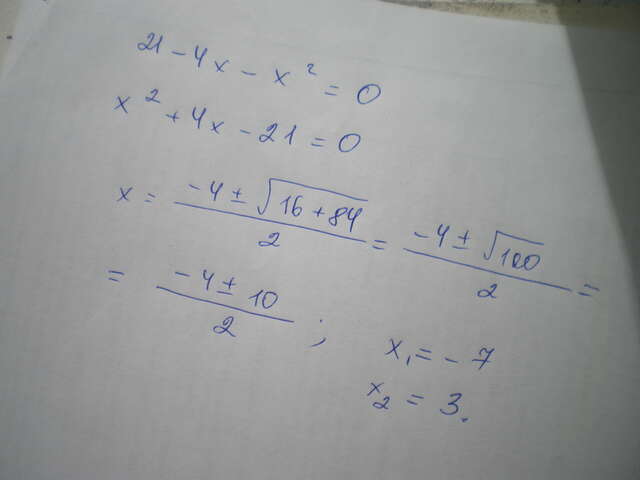 21 - 4x - x² = 0
x² + 4x - 21 = 0
x = (-4 ± √(16 + 84))/2 = (-4 ± √100)/2 =
= (-4 ± 10)/2 ; x₁ = - 7
x₂ = 3.